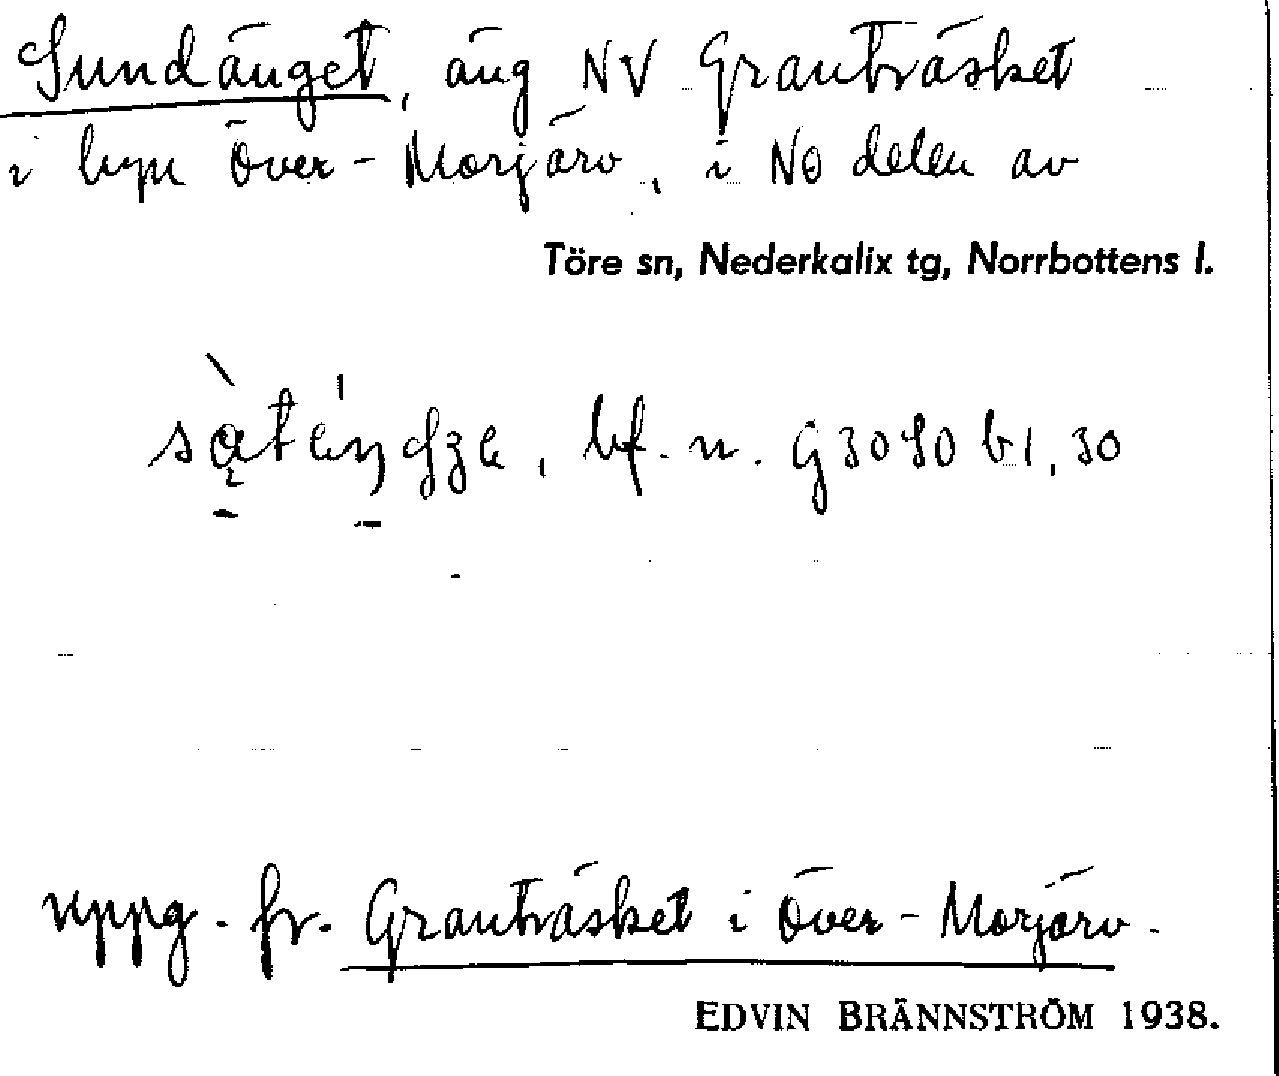 Sundänget, äng NV Granträsket
i byn Över-Morjärv, i NO delen av
Töre sn, Nederkalix tg, Norrbottens l.
bf. n. G3090 b1, 30
uppg. fr. Granträsket i Över-Morjärv.
EDVIN BRÄNNSTRÖM 1938.